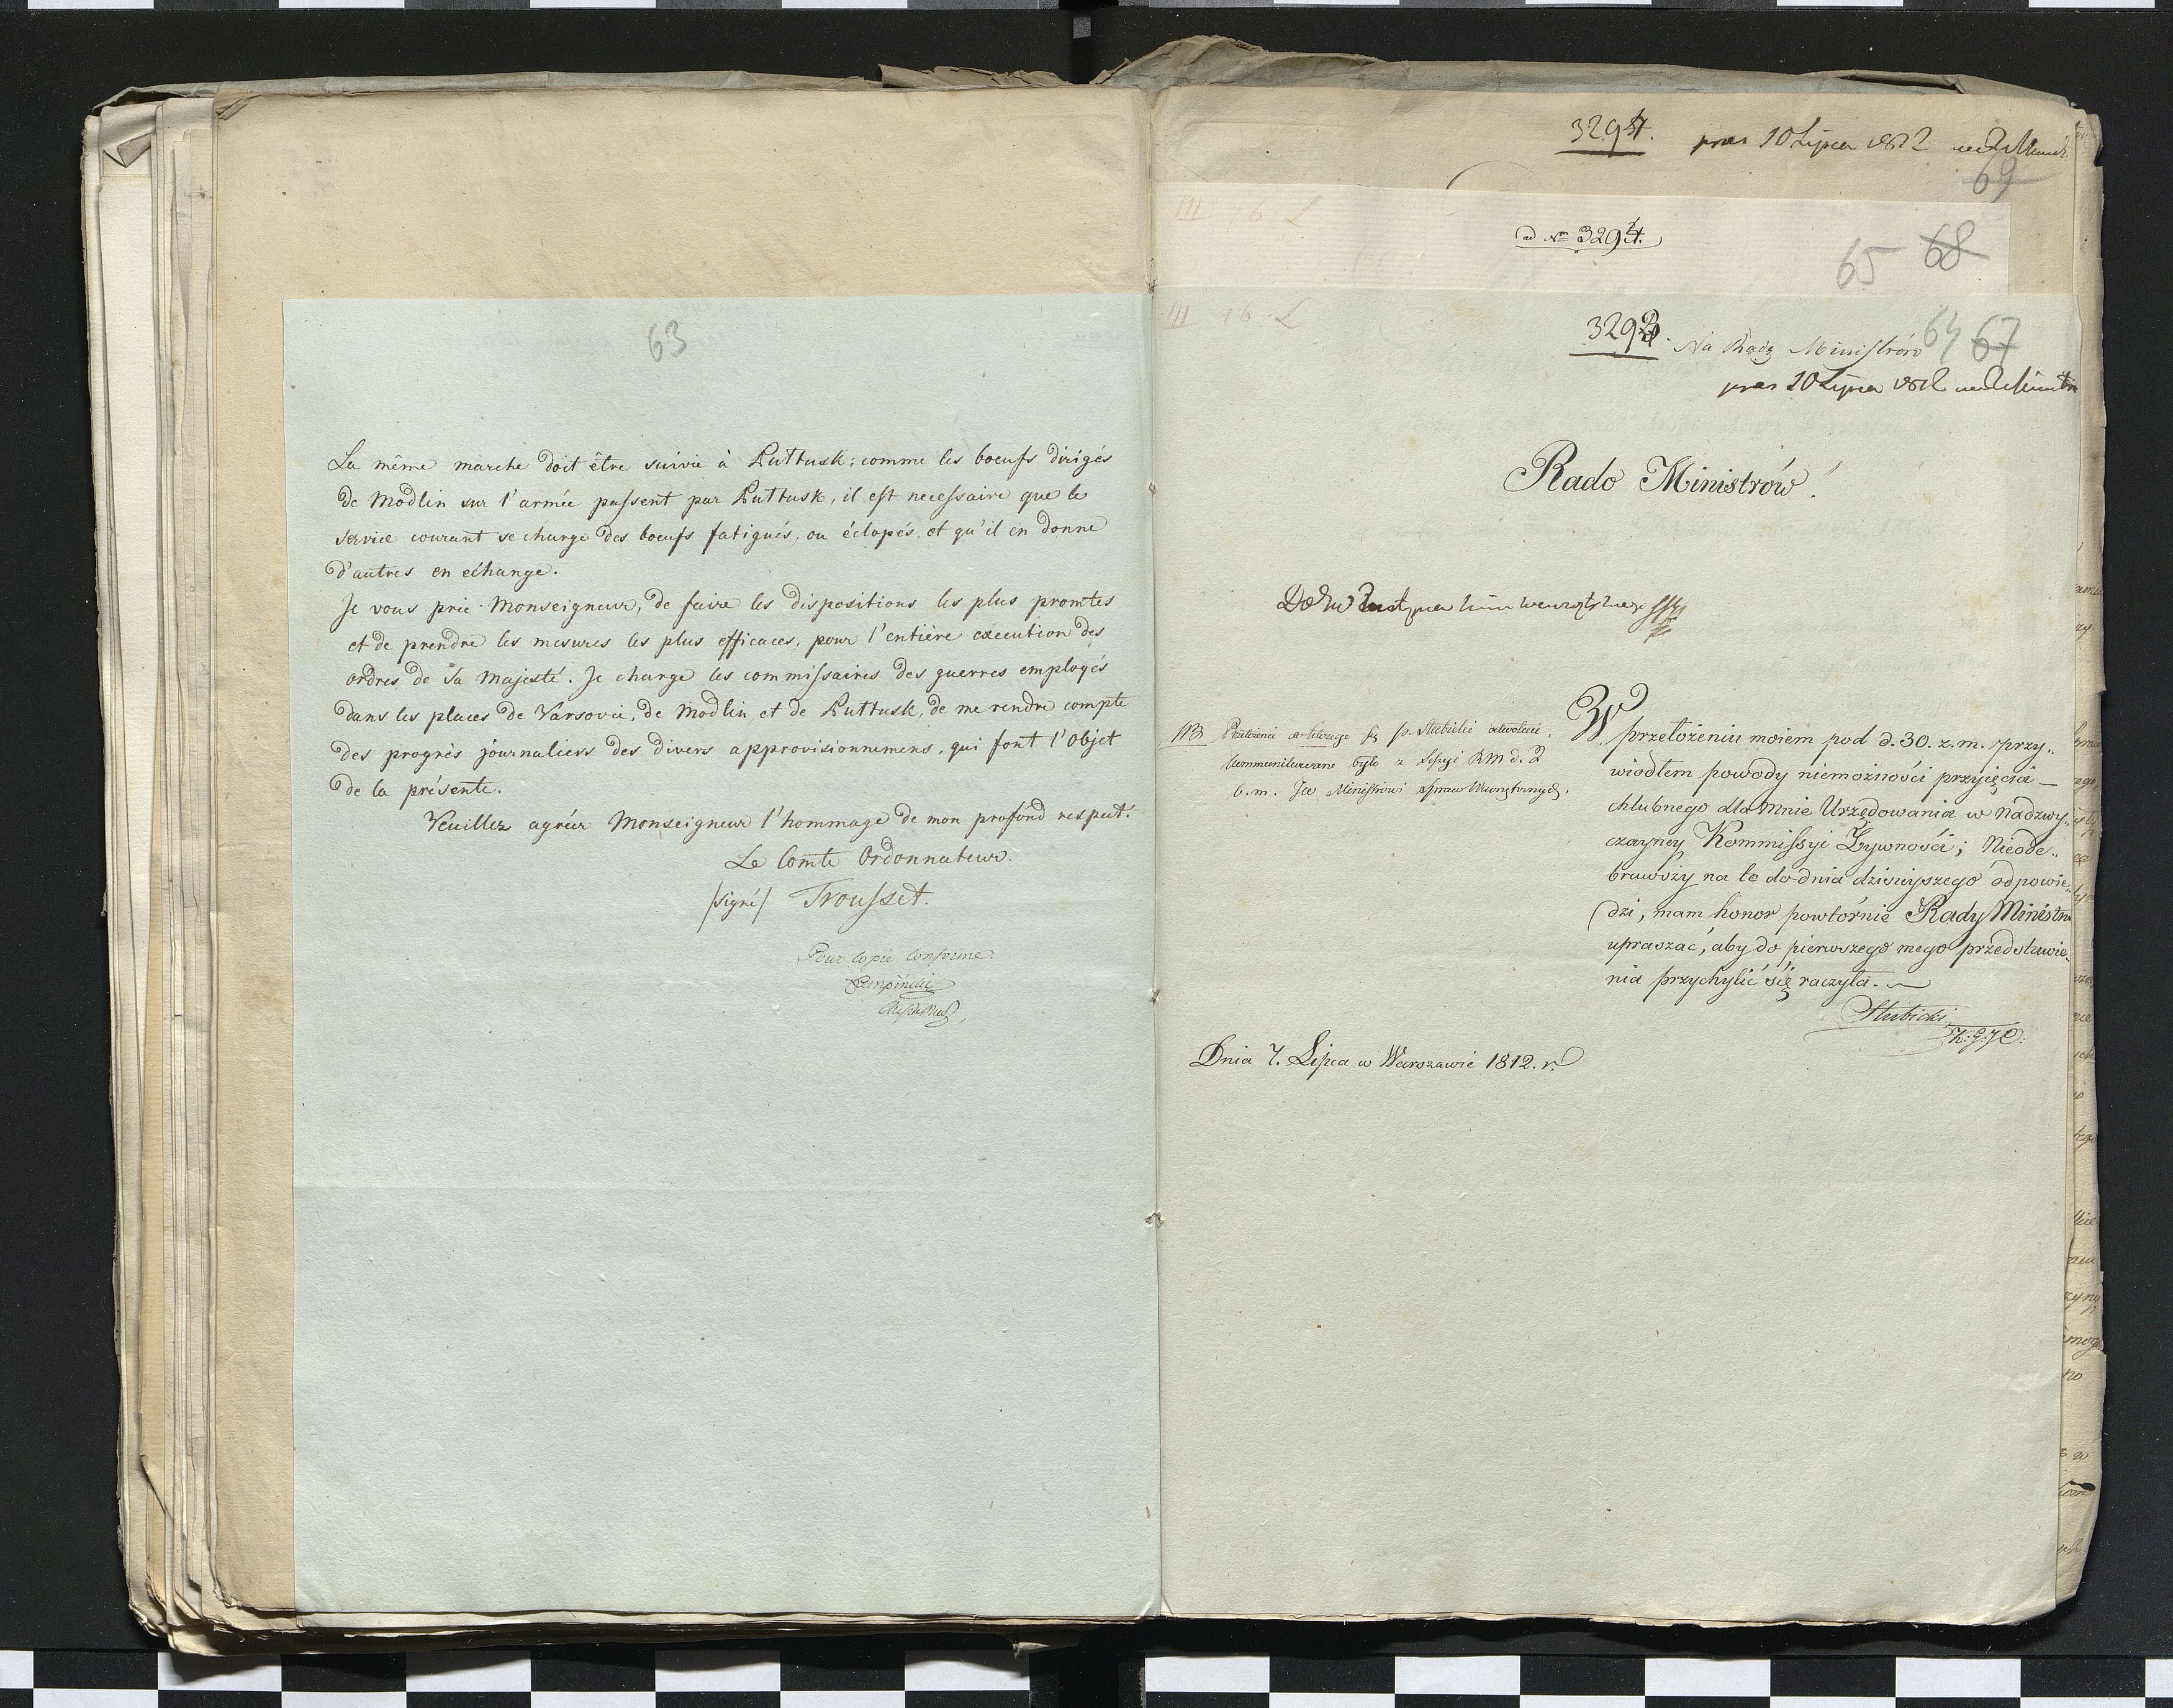 63
La même marche doit être suivie à Puttusk; comme les boeufs dirigés
de Modlin sur l'armée passent par Puttusk, il est necessaire que le
service courant se charge des boeufs fatigués, ou éclopés, et qu'il en donne
d'autres en echange.
Je vous prie Monseigneur, de faire les dispositions les plus promtes
et de prendre les mesures les plus efficaces, pour l'entière execution des
ordres de Sa Majesté. Je charge les commissaires des guerres employés
dans les places de Varsovie, de Modlin, et de Puttusk, de me rendre compte
des progrès journaliers des divers approvisionnemens, qui font l'Objet
de la présente.
Veuillez agréer Monseigneur l'hommage de mon profond respect.
Le Comte Ordonnateur.
/signé/ Trousset.
Pour copie conforme
3294.
pres 10 Lipca 1812
69
III 16 L
ad Nm 3294.
65 68
III 16 L
3292.
Na Radę Ministrów
64 67
pres 10 Lipca 1812
Rado Ministrów!
NB
komunikowane było z Sessyi RM d. 2
b. m. JW Ministrowi Spraw Wewnętrznych.
W przełożeniu moiem pod d. 30. z. m. przy„
wiodłem powody niemożności przyięcia
chlubnego dla mnie Urzędowania w Nadzwy„
czayney Kommissyi Żywności; Nieode„
brawszy na to do dnia dzisieyszego odpowie„
dzi, mam honor powtórnie Rady Ministrów
upraszać, aby do pierwszego mego przedstawie„
nia przychylić się raczyła.
Słubicki
Dnia 7. Lipca w Warszawie 1812. r.